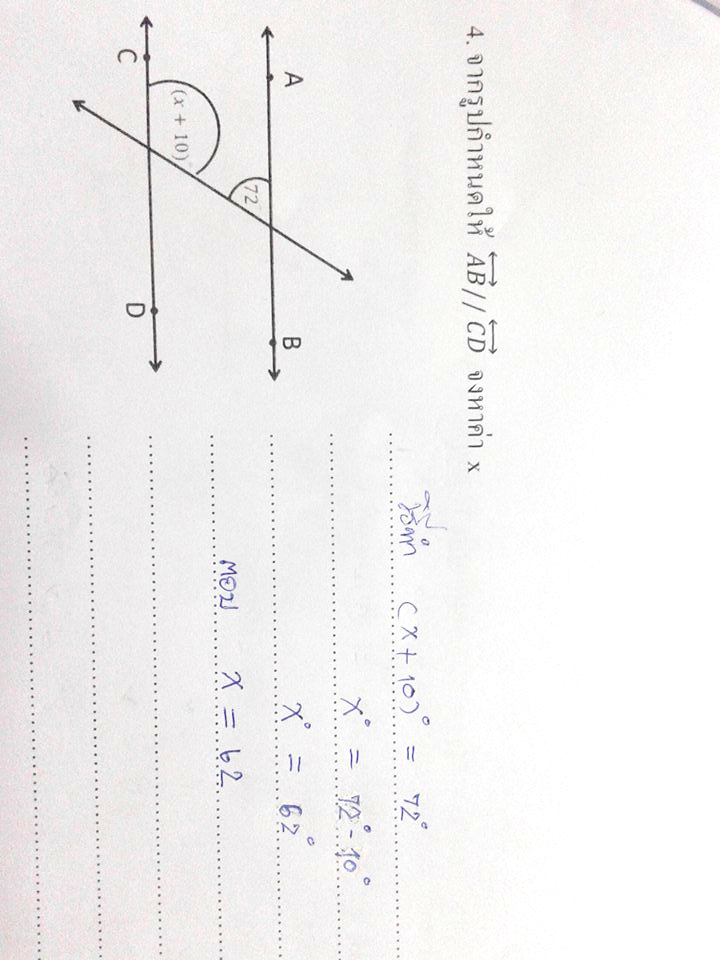 4. จากรูปกำหนดให้ AB//CD จงหาค่า x
A
B
72
(x + 10)°
C
D
วิธีทำ (x + 10)° = 72°
x° = 72° - 10°
x° = 62°
ตอบ x = 62